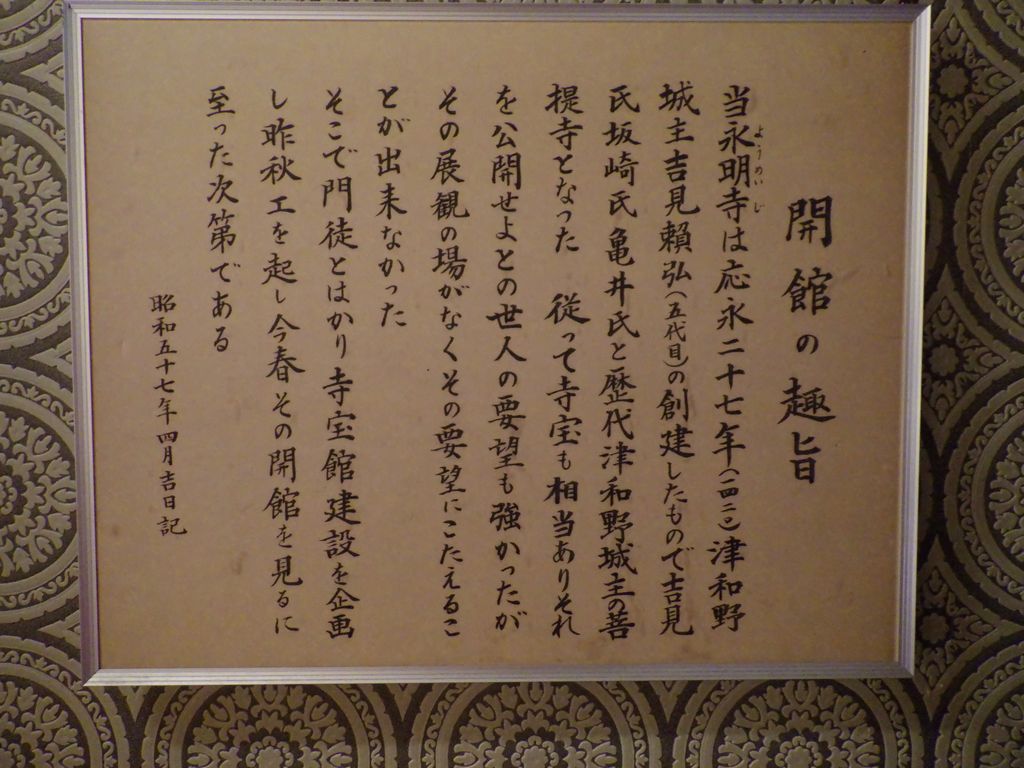 開館の趣旨
当永明寺は応永二十七年(一四二〇)津和野
ようめいじ
城主吉見頼弘(五代目)の創建したもので吉見
氏坂崎氏亀井氏と歴代津和野城主の菩
提寺となった 従って寺宝も相当ありそれ
を公開せよとの世人の要望も強かったが
その展観の場がなくその要望にこたえるこ
とが出来なかった
そこで門徒とはかり寺宝館建設を企画
し昨秋工を起し今春その開館を見るに
至った次第である
昭和五十七年四月吉日記